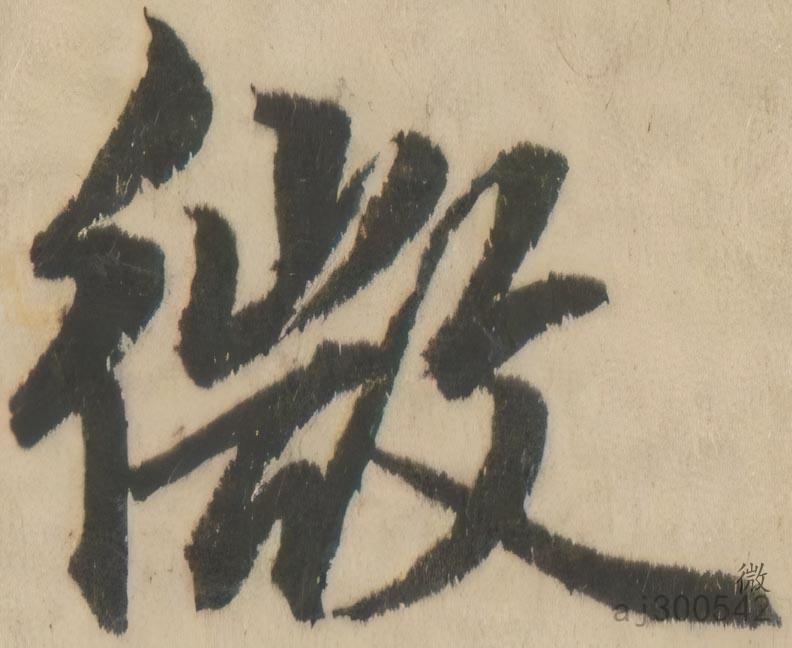 微
微
aj300542